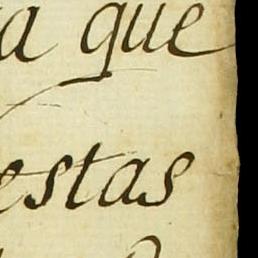 a que
estas